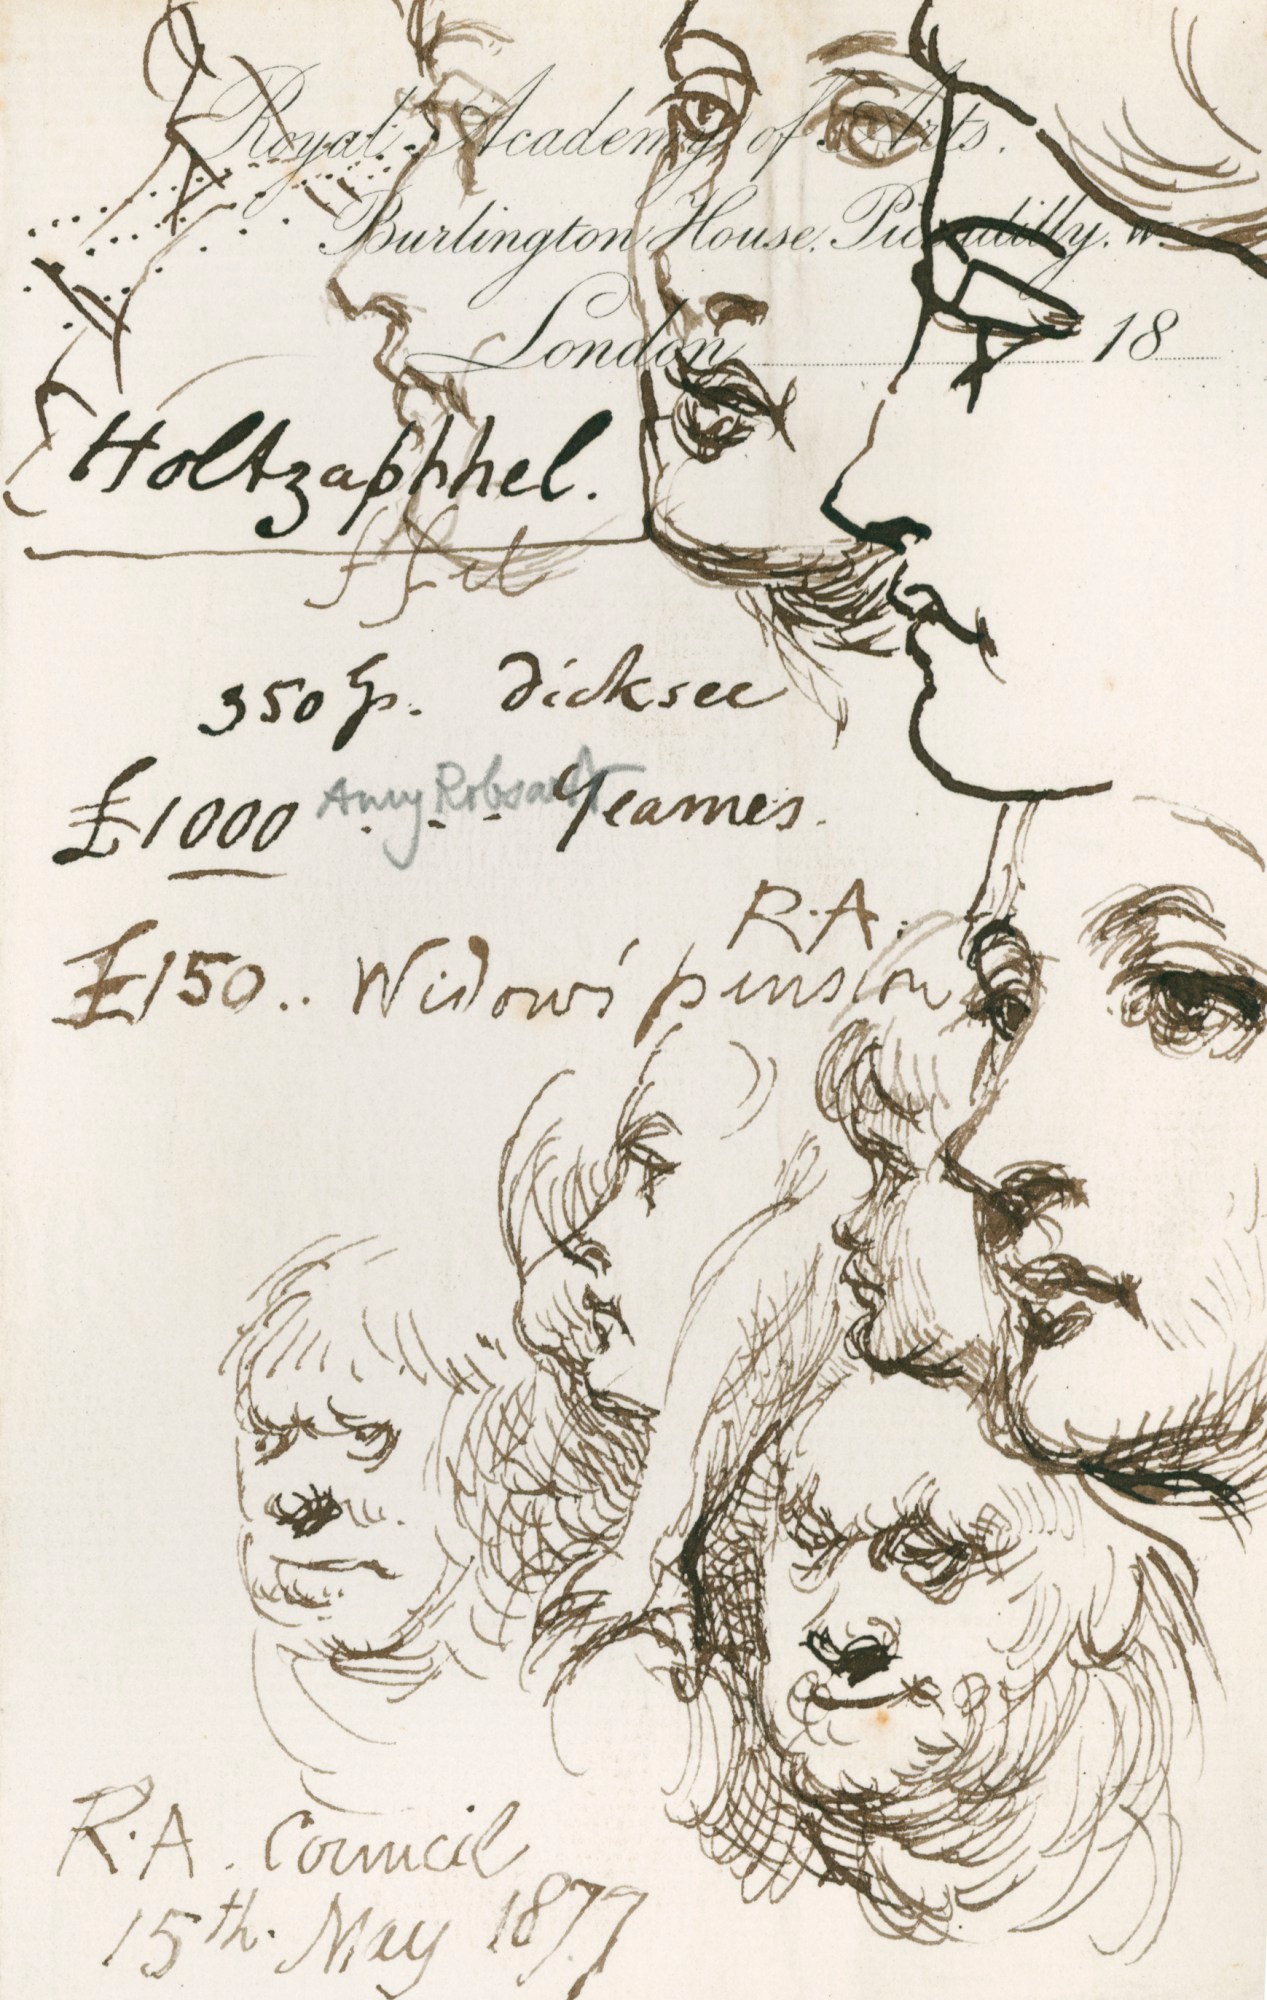 Royal Academy of Arts.
Burlington House, Piccadilly. W.
London 18
Holtzaphhel.
ffel
350 Gs. Dicksee
£1000 Amy Robsart Yeames.
R.A.
£150.. Widows' pension
R.A. Council
15th. May 1877